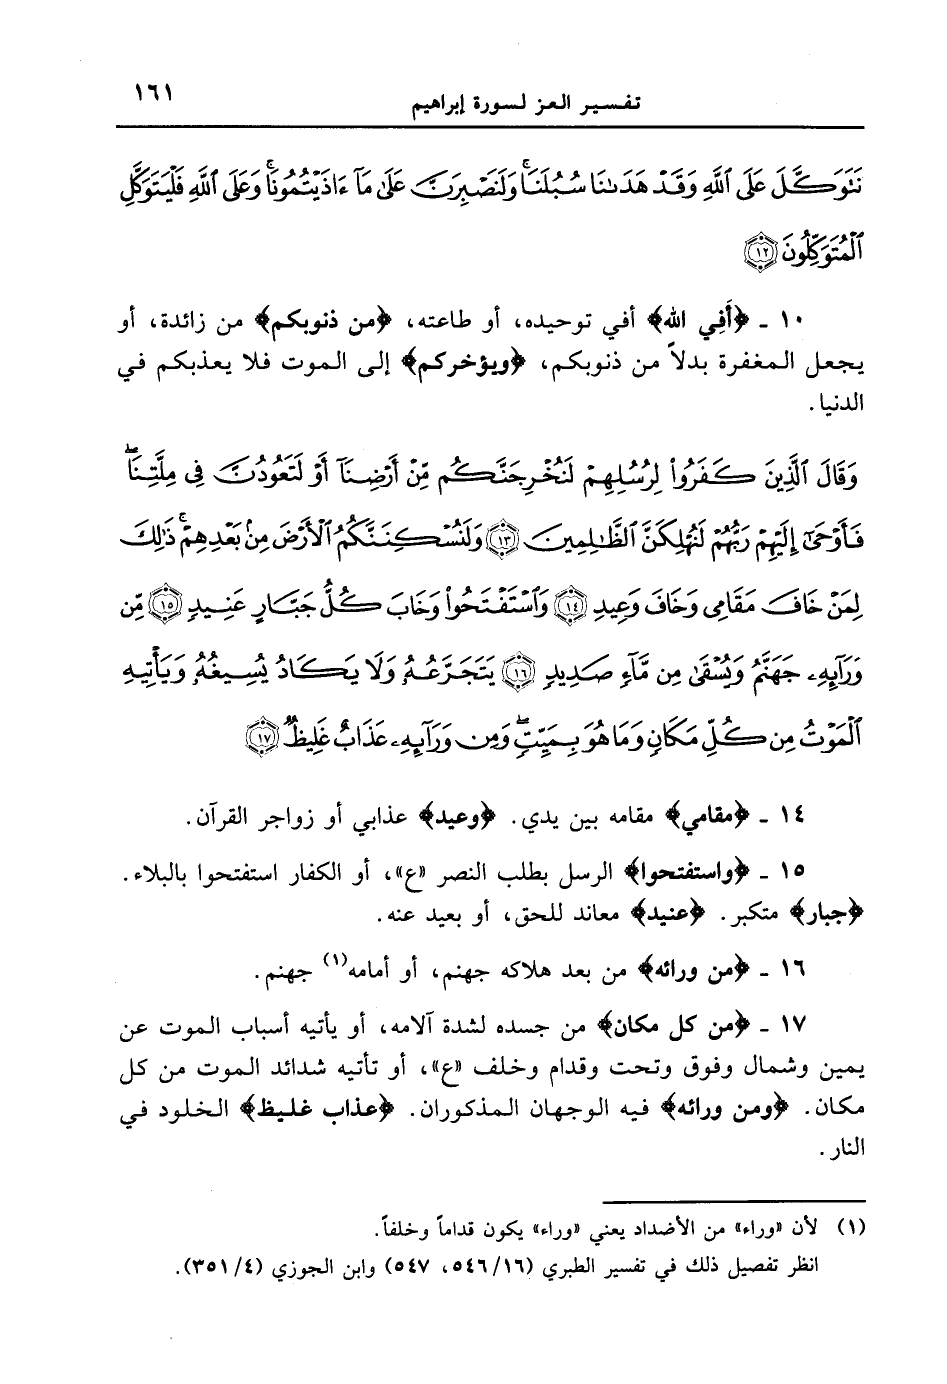 تفسير العز لسورة إبراهيم
١٦١
نَتَوَكَّلَ عَلَى ٱللَّهِ وَقَدْ هَدَىٰنَا سُبُلَنَا ۚ وَلَنَصْبِرَنَّ عَلَىٰ مَآ ءَاذَيْتُمُونَا ۚ وَعَلَى ٱللَّهِ فَلْيَتَوَكَّلِ
ٱلْمُتَوَكِّلُونَ ﴿١٢﴾
١٠ ـ ﴿أَفِي الله﴾ أفي توحيده، أو طاعته، ﴿من ذنوبكم﴾ من زائدة، أو
يجعل المغفرة بدلاً من ذنوبكم، ﴿ويؤخركم﴾ إلى الموت فلا يعذبكم في
الدنيا.
وَقَالَ ٱلَّذِينَ كَفَرُوا۟ لِرُسُلِهِمْ لَنُخْرِجَنَّكُم مِّنْ أَرْضِنَآ أَوْ لَتَعُودُنَّ فِى مِلَّتِنَا ۖ
فَأَوْحَىٰٓ إِلَيْهِمْ رَبُّهُمْ لَنُهْلِكَنَّ ٱلظَّـٰلِمِينَ ﴿١٣﴾ وَلَنُسْكِنَنَّكُمُ ٱلْأَرْضَ مِنۢ بَعْدِهِمْ ۚ ذَٰلِكَ
لِمَنْ خَافَ مَقَامِى وَخَافَ وَعِيدِ ﴿١٤﴾ وَٱسْتَفْتَحُوا۟ وَخَابَ كُلُّ جَبَّارٍ عَنِيدٍ ﴿١٥﴾ مِّن
وَرَآئِهِۦ جَهَنَّمُ وَيُسْقَىٰ مِن مَّآءٍ صَدِيدٍ ﴿١٦﴾ يَتَجَرَّعُهُۥ وَلَا يَكَادُ يُسِيغُهُۥ وَيَأْتِيهِ
ٱلْمَوْتُ مِن كُلِّ مَكَانٍ وَمَا هُوَ بِمَيِّتٍ ۖ وَمِن وَرَآئِهِۦ عَذَابٌ غَلِيظٌ ﴿١٧﴾
١٤ ـ ﴿مقامي﴾ مقامه بين يدي. ﴿وعيد﴾ عذابي أو زواجر القرآن.
١٥ ـ ﴿واستفتحوا﴾ الرسل بطلب النصر «ع»، أو الكفار استفتحوا بالبلاء.
﴿جبار﴾ متكبر. ﴿عنيد﴾ معاند للحق، أو بعيد عنه.
١٦ ـ ﴿من ورائه﴾ من بعد هلاكه جهنم، أو أمامه(١) جهنم.
١٧ ـ ﴿من كل مكان﴾ من جسده لشدة آلامه، أو يأتيه أسباب الموت عن
يمين وشمال وفوق وتحت وقدام وخلف «ع»، أو تأتيه شدائد الموت من كل
مكان. ﴿ومن ورائه﴾ فيه الوجهان المذكوران. ﴿عذاب غليظ﴾ الخلود في
النار.
(١) لأن «وراء» من الأضداد يعني «وراء» يكون قداماً وخلفاً.
انظر تفصيل ذلك في تفسير الطبري (٥٤٦/١٦، ٥٤٧) وابن الجوزي (٣٥١/٤).